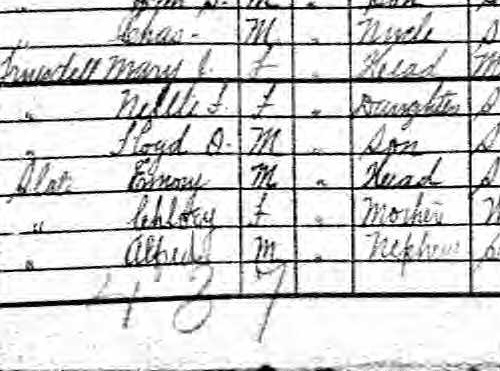 " M " Son S
" Chas- M. " Uncle S
Truesdell Mary C. F " Head M
" Nellie F. F " Daughter S
" Floyd D. M " Son S
Slat Emory M " Head S
" Chlory F " Mother W
" Alfred M " Nephew S
4 3 7